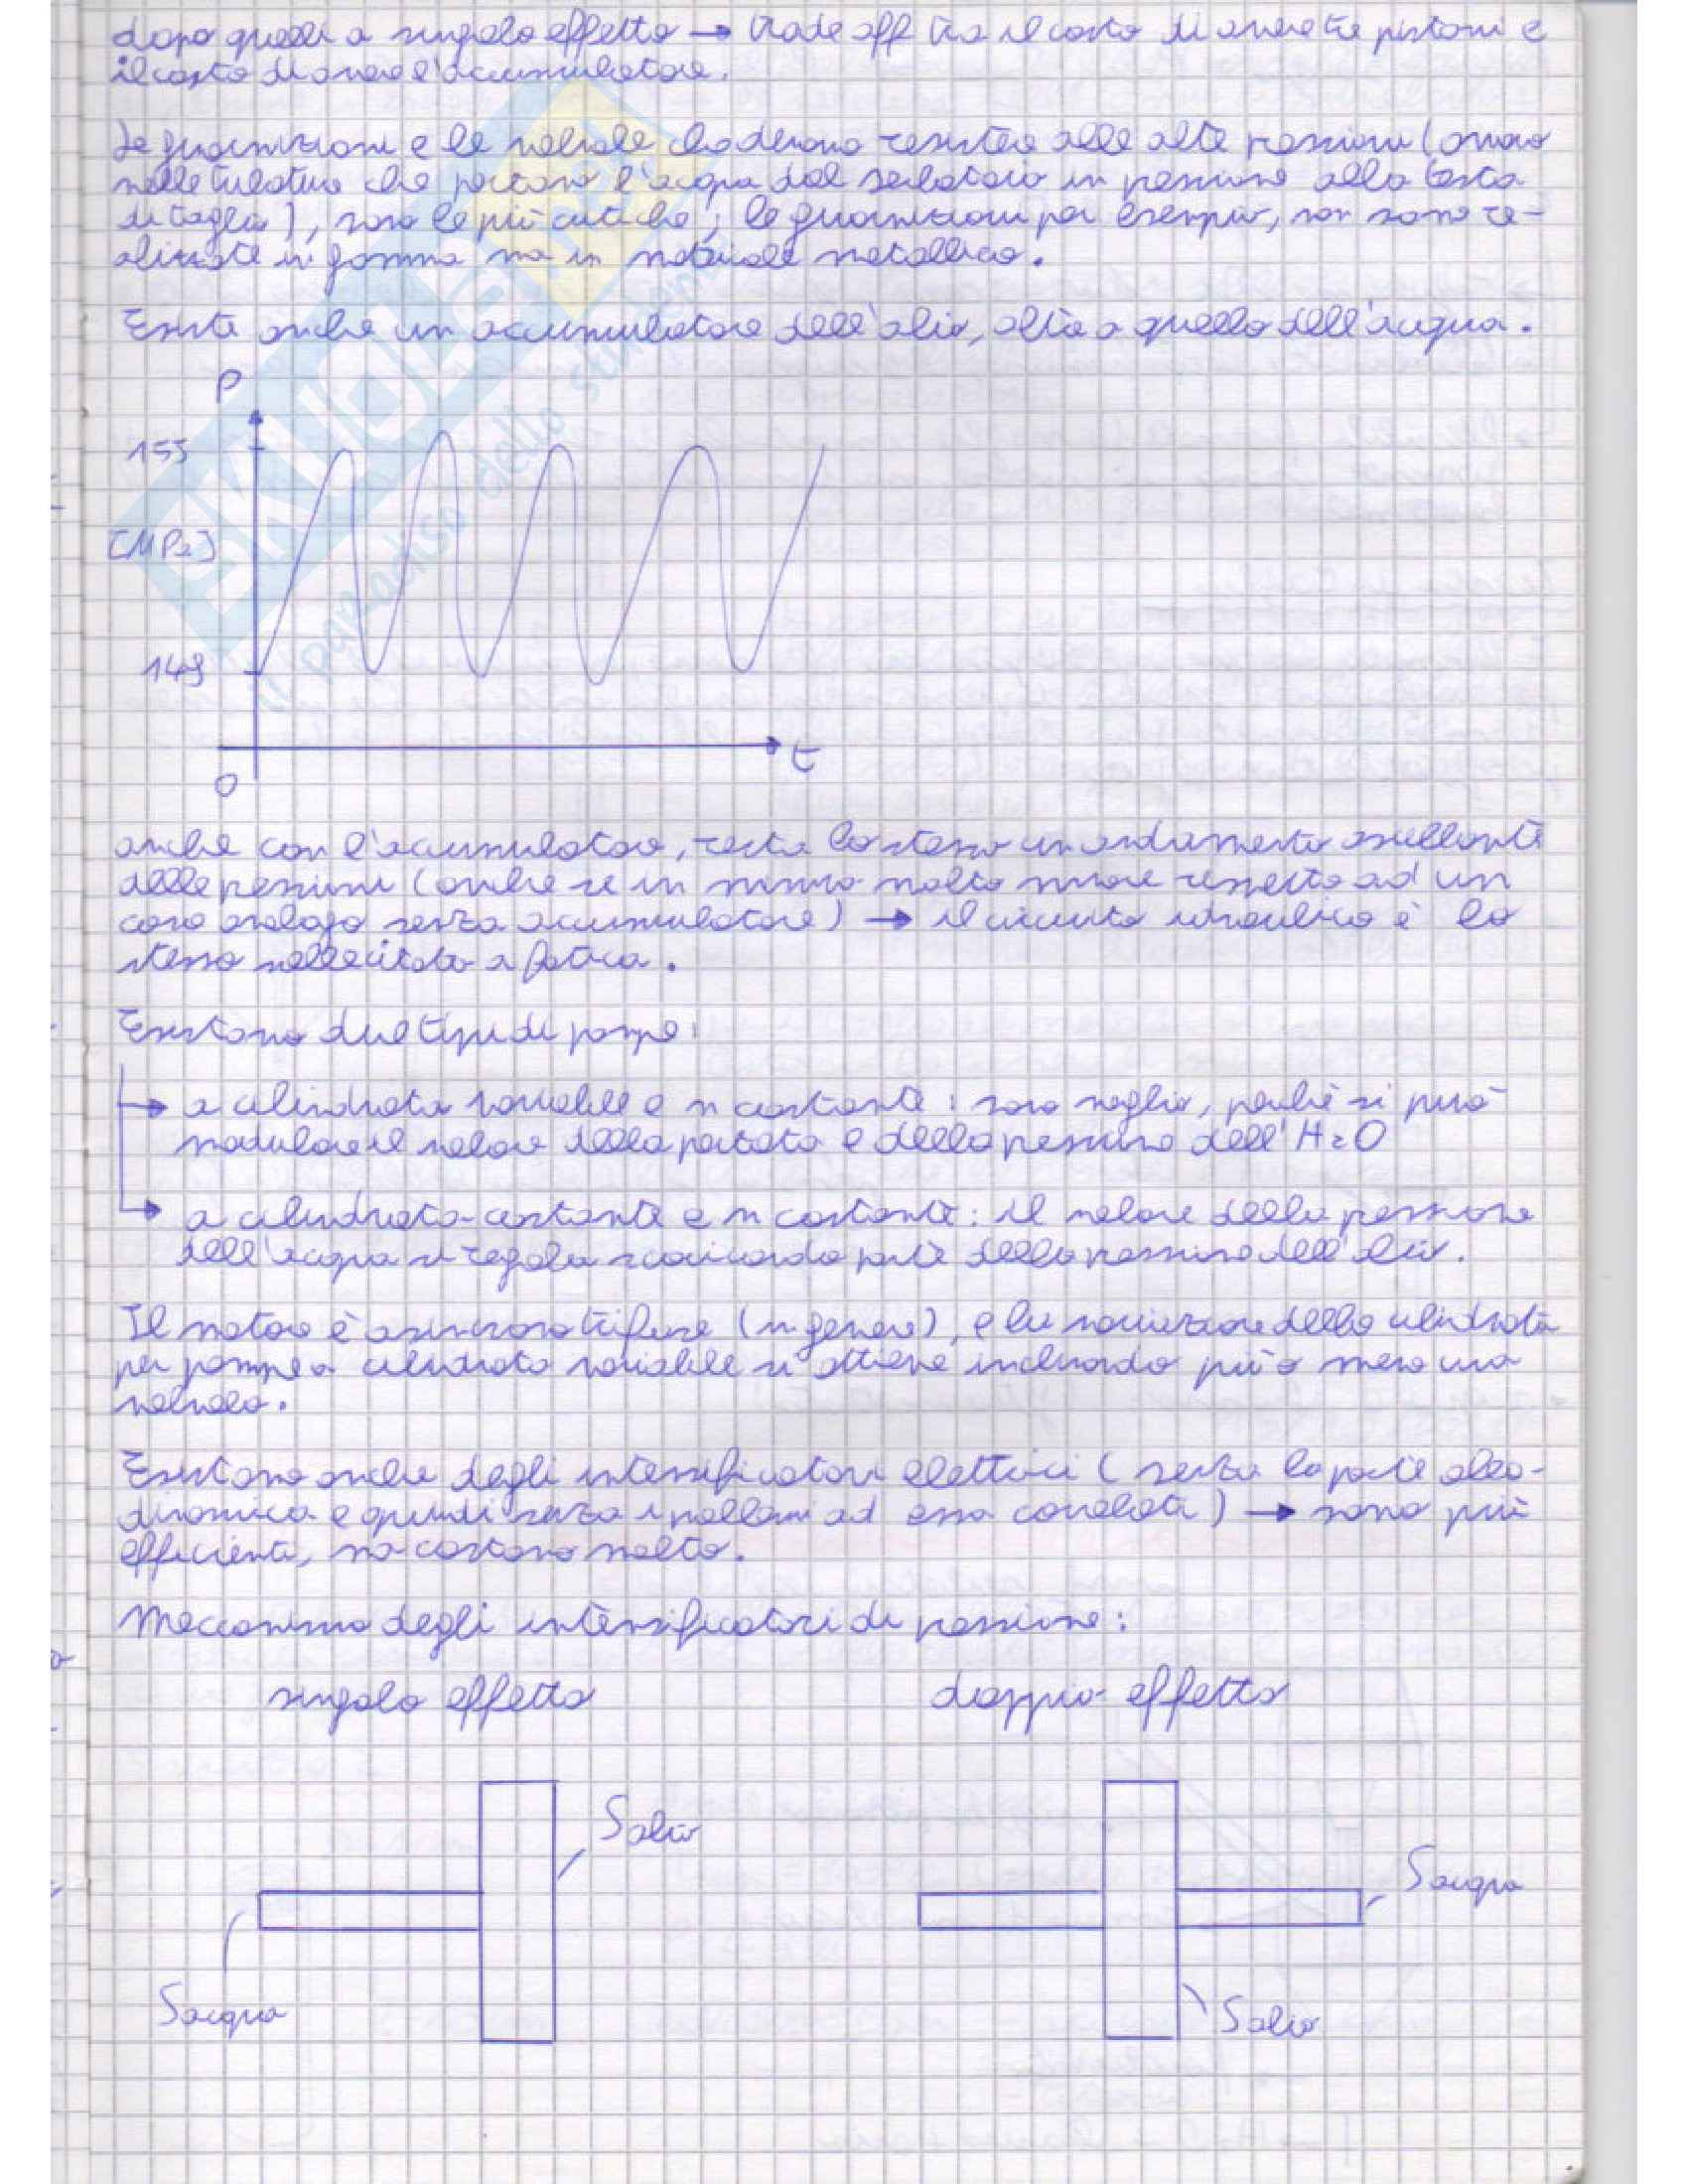 dopo quelli a singolo effetto → trade off tra il costo di avere tre pistoni e
il costo di avere l'accumulatore.
Le guarnizioni e le valvole che devono resistere alle alte pressioni (ovvero
nelle tubature che portano l'acqua dal serbatoio in pressione alla testa
di taglio), sono le più critiche; le guarnizioni per esempio, non sono re-
alizzate in gomma ma in materiale metallico.
Esiste anche un accumulatore dell'olio, oltre a quello dell'acqua.
P
155
[MPa]
149
0
t
anche con l'accumulatore, resta lo stesso un andamento oscillante
delle pressioni (anche se in minor molto minore rispetto ad un
caso analogo senza accumulatore) → il circuito idraulico è lo
stesso sollecitato a fatica.
Esistono due tipi di pompe:
→ a cilindrata variabile e n costante: sono meglio, perché si può
modulare il valore della portata e della pressione dell'H2O
→ a cilindrata costante e n costante: il valore della pressione
dell'acqua si regola scaricando parte della pressione dell'olio.
Il motore è asincrono trifase (in genere), e la variazione della cilindrata
per pompe a cilindrata variabile si ottiene inclinando più o meno una
valvola.
Esistono anche degli intensificatori elettrici (senza la parte oleo-
dinamica e quindi senza i problemi ad essa correlati) → sono più
efficienti, ma costano molto.
Meccanismo degli intensificatori di pressione:
singolo effetto doppio effetto
Solio
Sacqua
Sacqua
Solio
SKUOLA.net
il paradiso dello studente